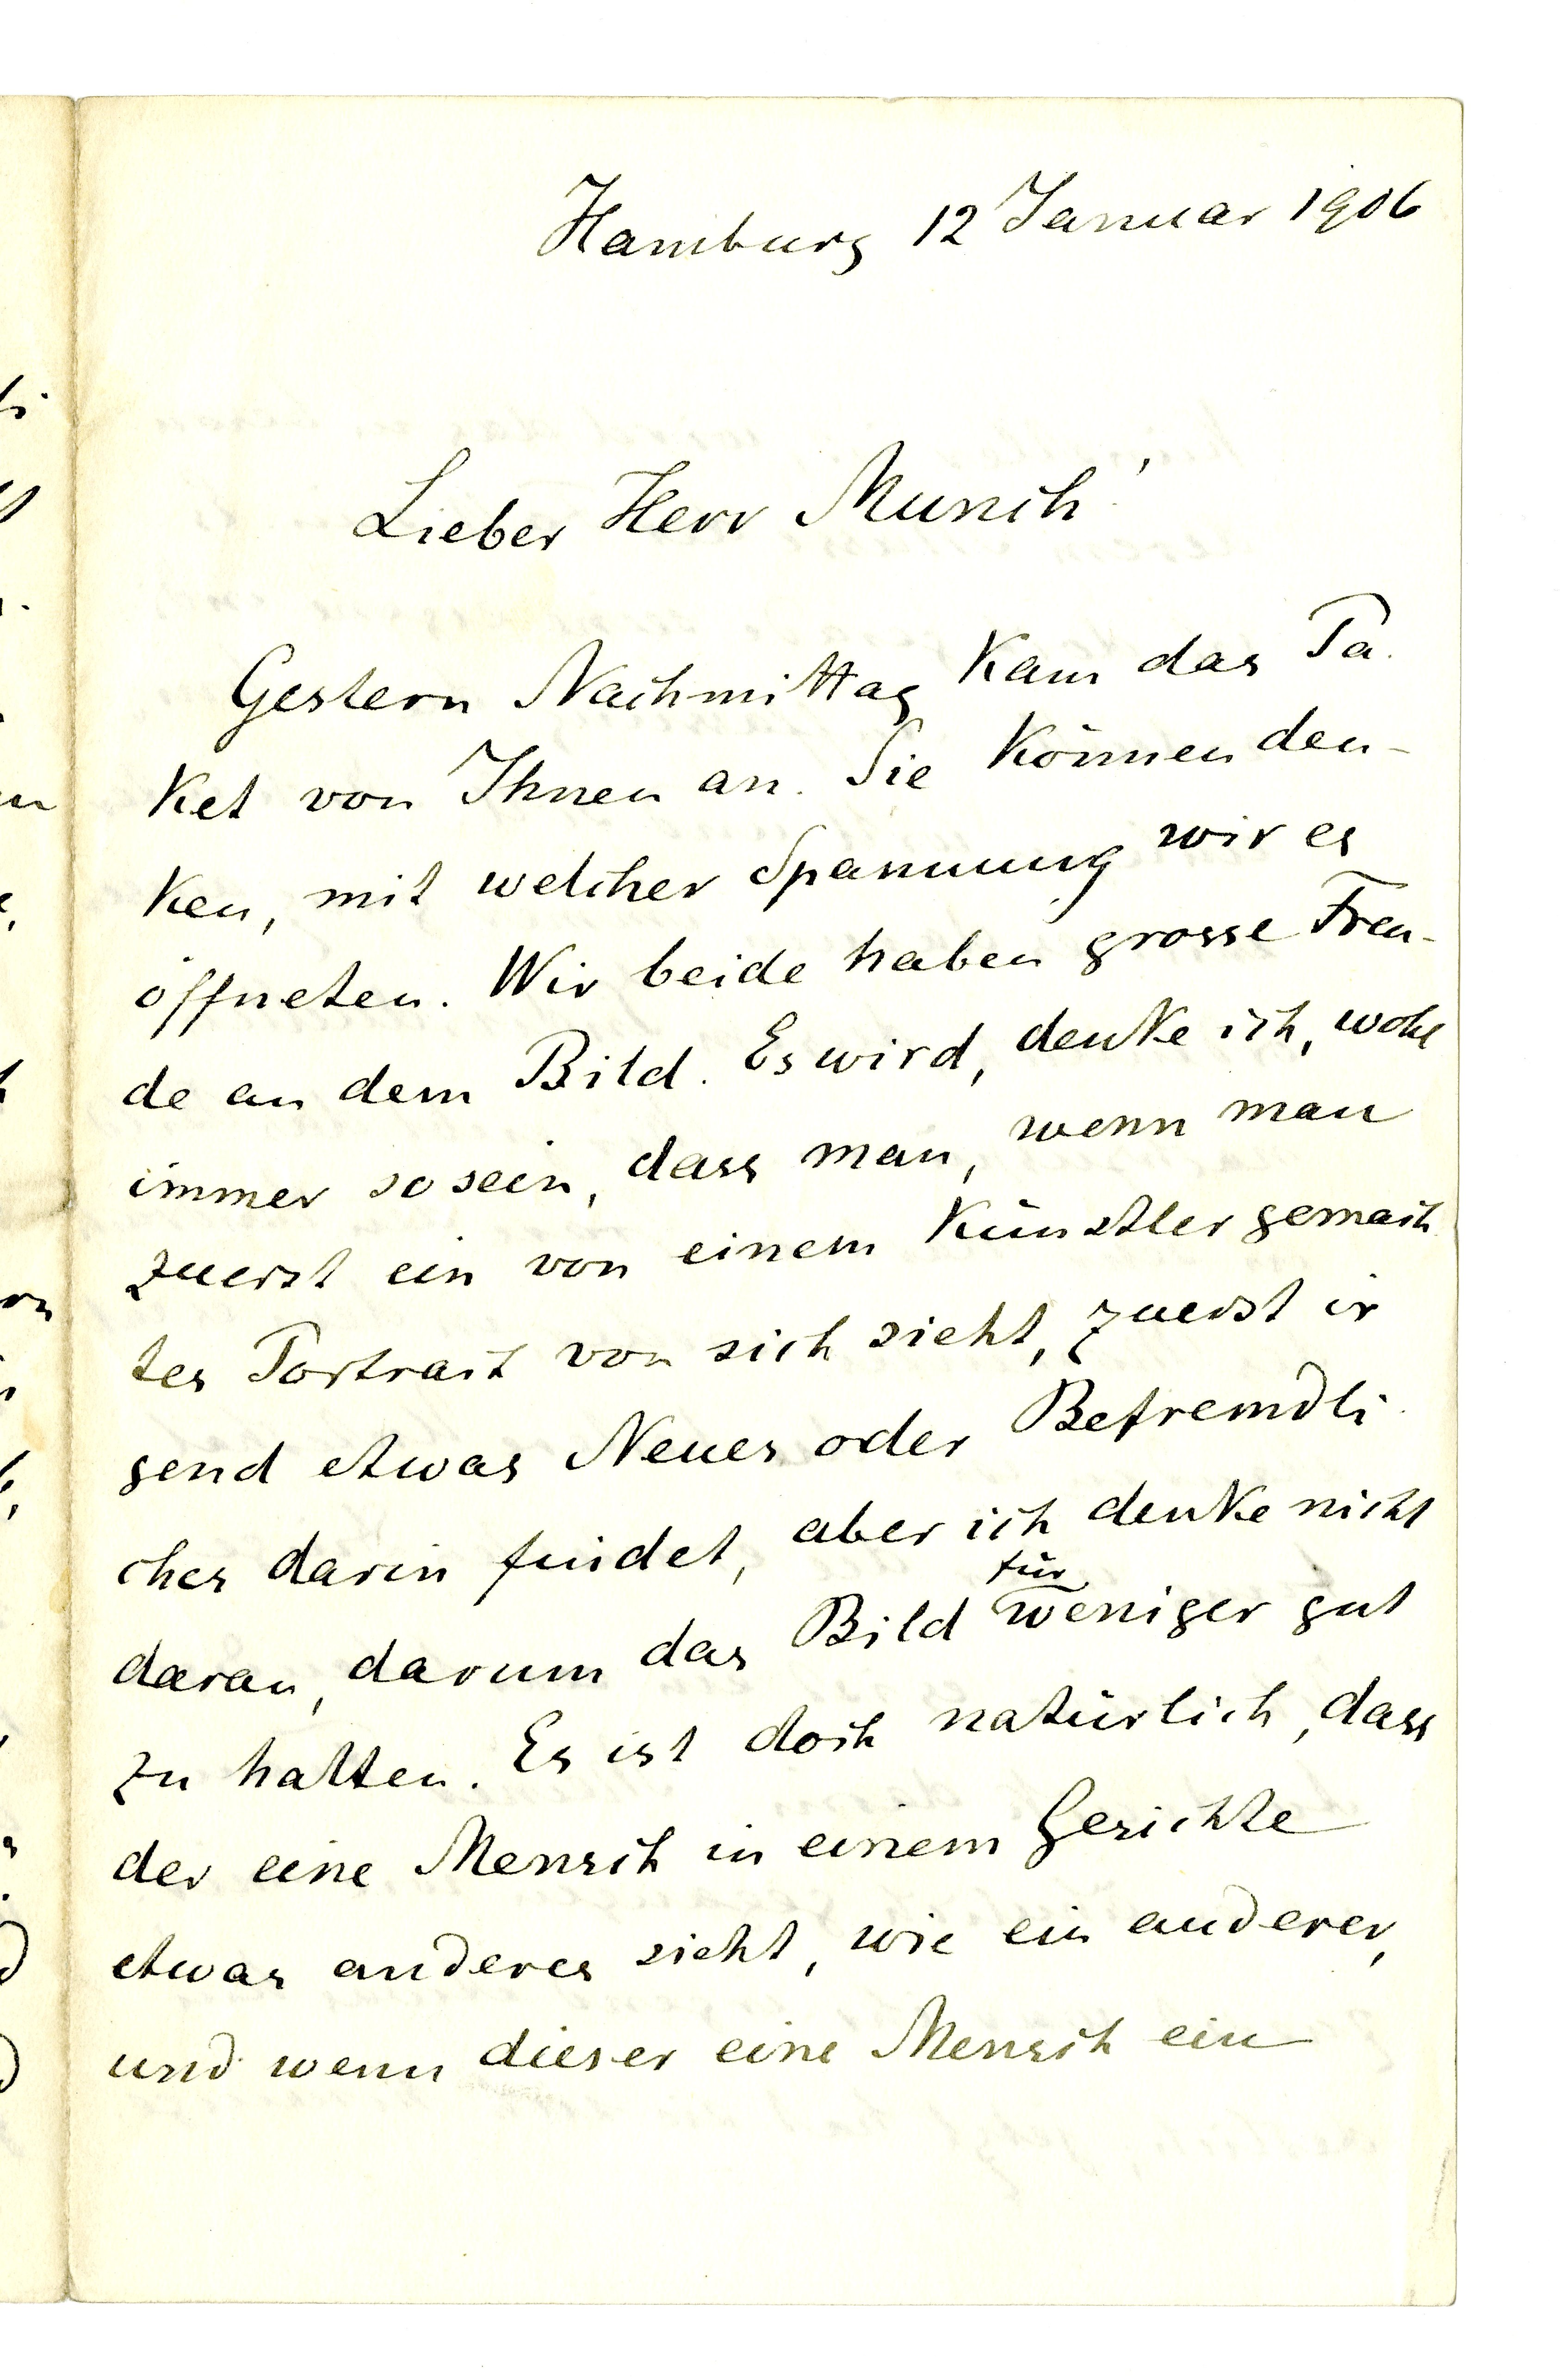 Hamburg 12 Januar 1906
Lieber Herr Munch!
Gestern Nachmittag kam das Pa-
ket von Ihnen an. Sie können den-
ken, mit welcher Spannung wir es
öffneten. Wir beide haben grosse Freu-
de an dem Bild. Es wird, denke ich, wohl
immer so sein, dass man, wenn man
zuerst ein von einem Künstler gemach-
tes Portrait von sich sieht, zuerst ir
gend etwas Neues oder Befremdli-
ches darin findet, aber ich denke nicht
daran, darum das Bild für weniger gut
zu halten. Es ist doch natürlich, dass
der eine Mensch in einem Gesichte
etwas anderes sieht, wie ein anderer,
und wenn dieser eine Mensch ein